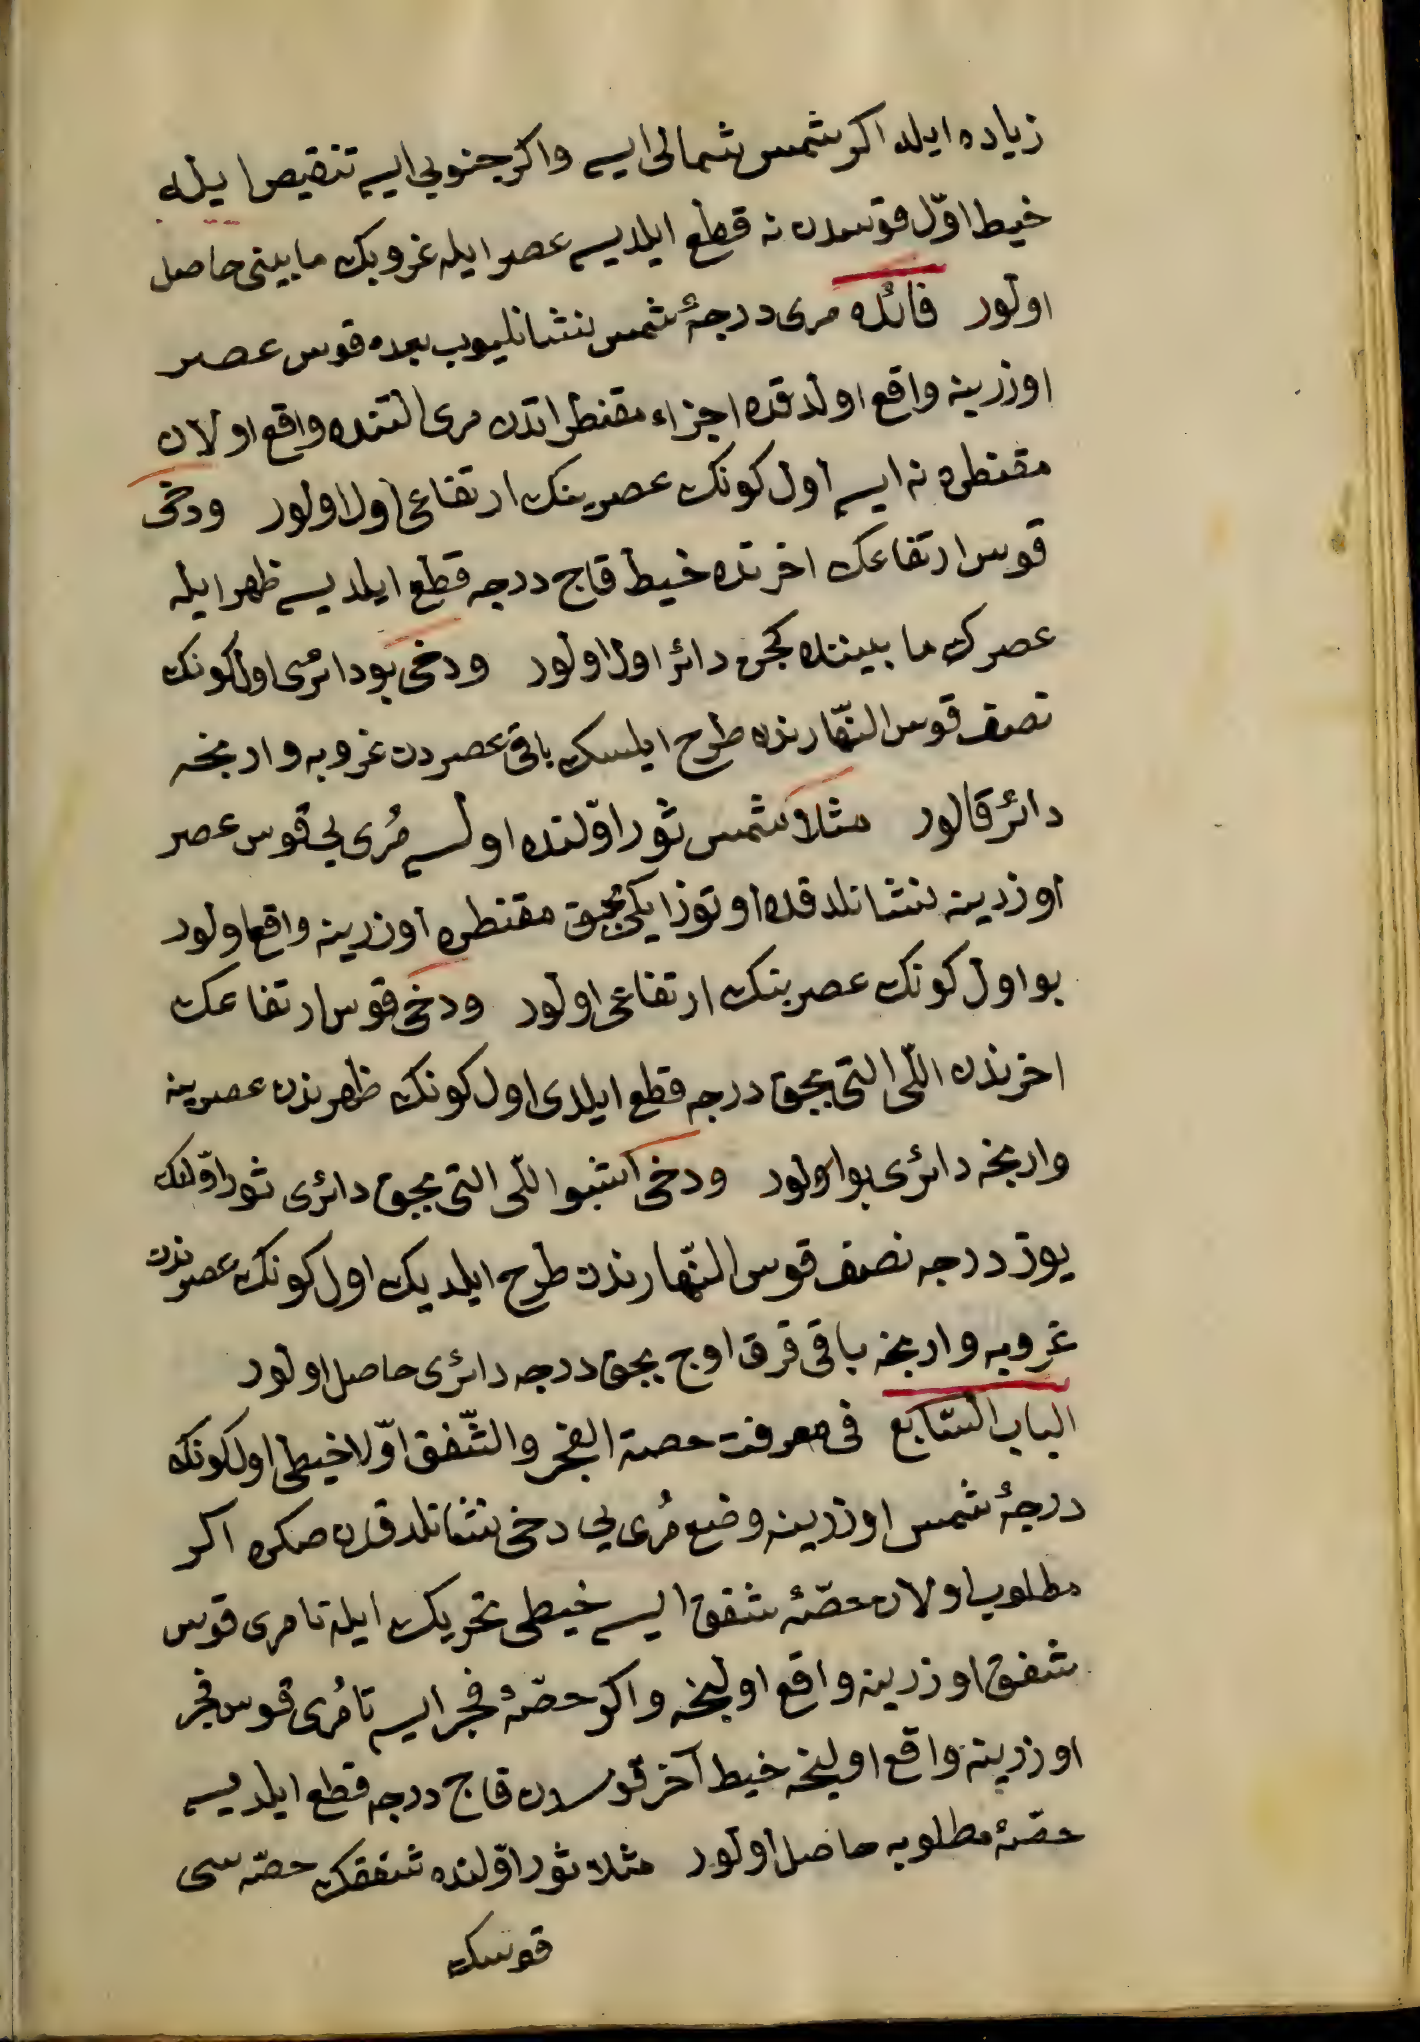 زیاده ایله اکر شمس شمالی ایسه واکر جنوبی ایسه تنقیص ایله
خیط اوّل قوسدن نه قطع ایلدیسه عصر ایله غروبک مابینی حاصل
اولور فائده مری درجهٔ شمس نشانلیوب بعده قوس عصر
اوزرینه واقع اولدقده اجزاء مقنطراتدن مری التنده واقع اولان
مقنطره نه ایسه اول کونک عصرینک ارتفاعی اول اولور ودخی
قوس ارتفاعک اخرنده خیط قاج درجه قطع ایلدیسه ظهر ایله
عصرک ما بیننده کجن دائر اول اولور ودخی بو دائرهیی اول کونک
نصف قوس النّهارندن طرح ایلسک باقی عصردن غروبه وارنجه
دائر قالور مثلا شمس ثور اوّلنده اولسه مُری یی قوس عصر
اوزرینه نشانلدقده اوتوز ایکی بچق مقنطره اوزرینه واقع اولور
بو اول کونک عصرینک ارتفاعی اولور ودخی قوس ارتفاعک
اخرندن اللّی التی بچق درجه قطع ایلدی اول کونک ظهرندن عصرینه
وارنجه دائری بو اولور ودخی اشبو اللّی التی بچق دائری ثور اوّلنک
یوز درجه نصف قوس النّهارندن طرح ایلدیک اول کونک عصرندن
غروبه وارنجه باقی قرق اوج بچق درجه دائری حاصل اولور
الباب السّابع فی معرفت حصة الفجر والشّفق اوّلا خیطی اول کونک
درجهٔ شمس اوزرینه وضع مُری یی دخی نشانلدقدن صکره اکر
مطلوب اولان حصّهٔ شفق ایسه خیطی تحریک ایله تا مری قوس
شفق اوزرینه واقع اولنجه واکر حصّهٔ فجر ایسه تا مُری قوس فجر
اوزرینه واقع اولنجه خیط آخر قوسدن قاج درجه قطع ایلدیسه
حصّهٔ مطلوبه حاصل اولور مثلا ثور اوّلنده شفقک حصّه سی
قوسک